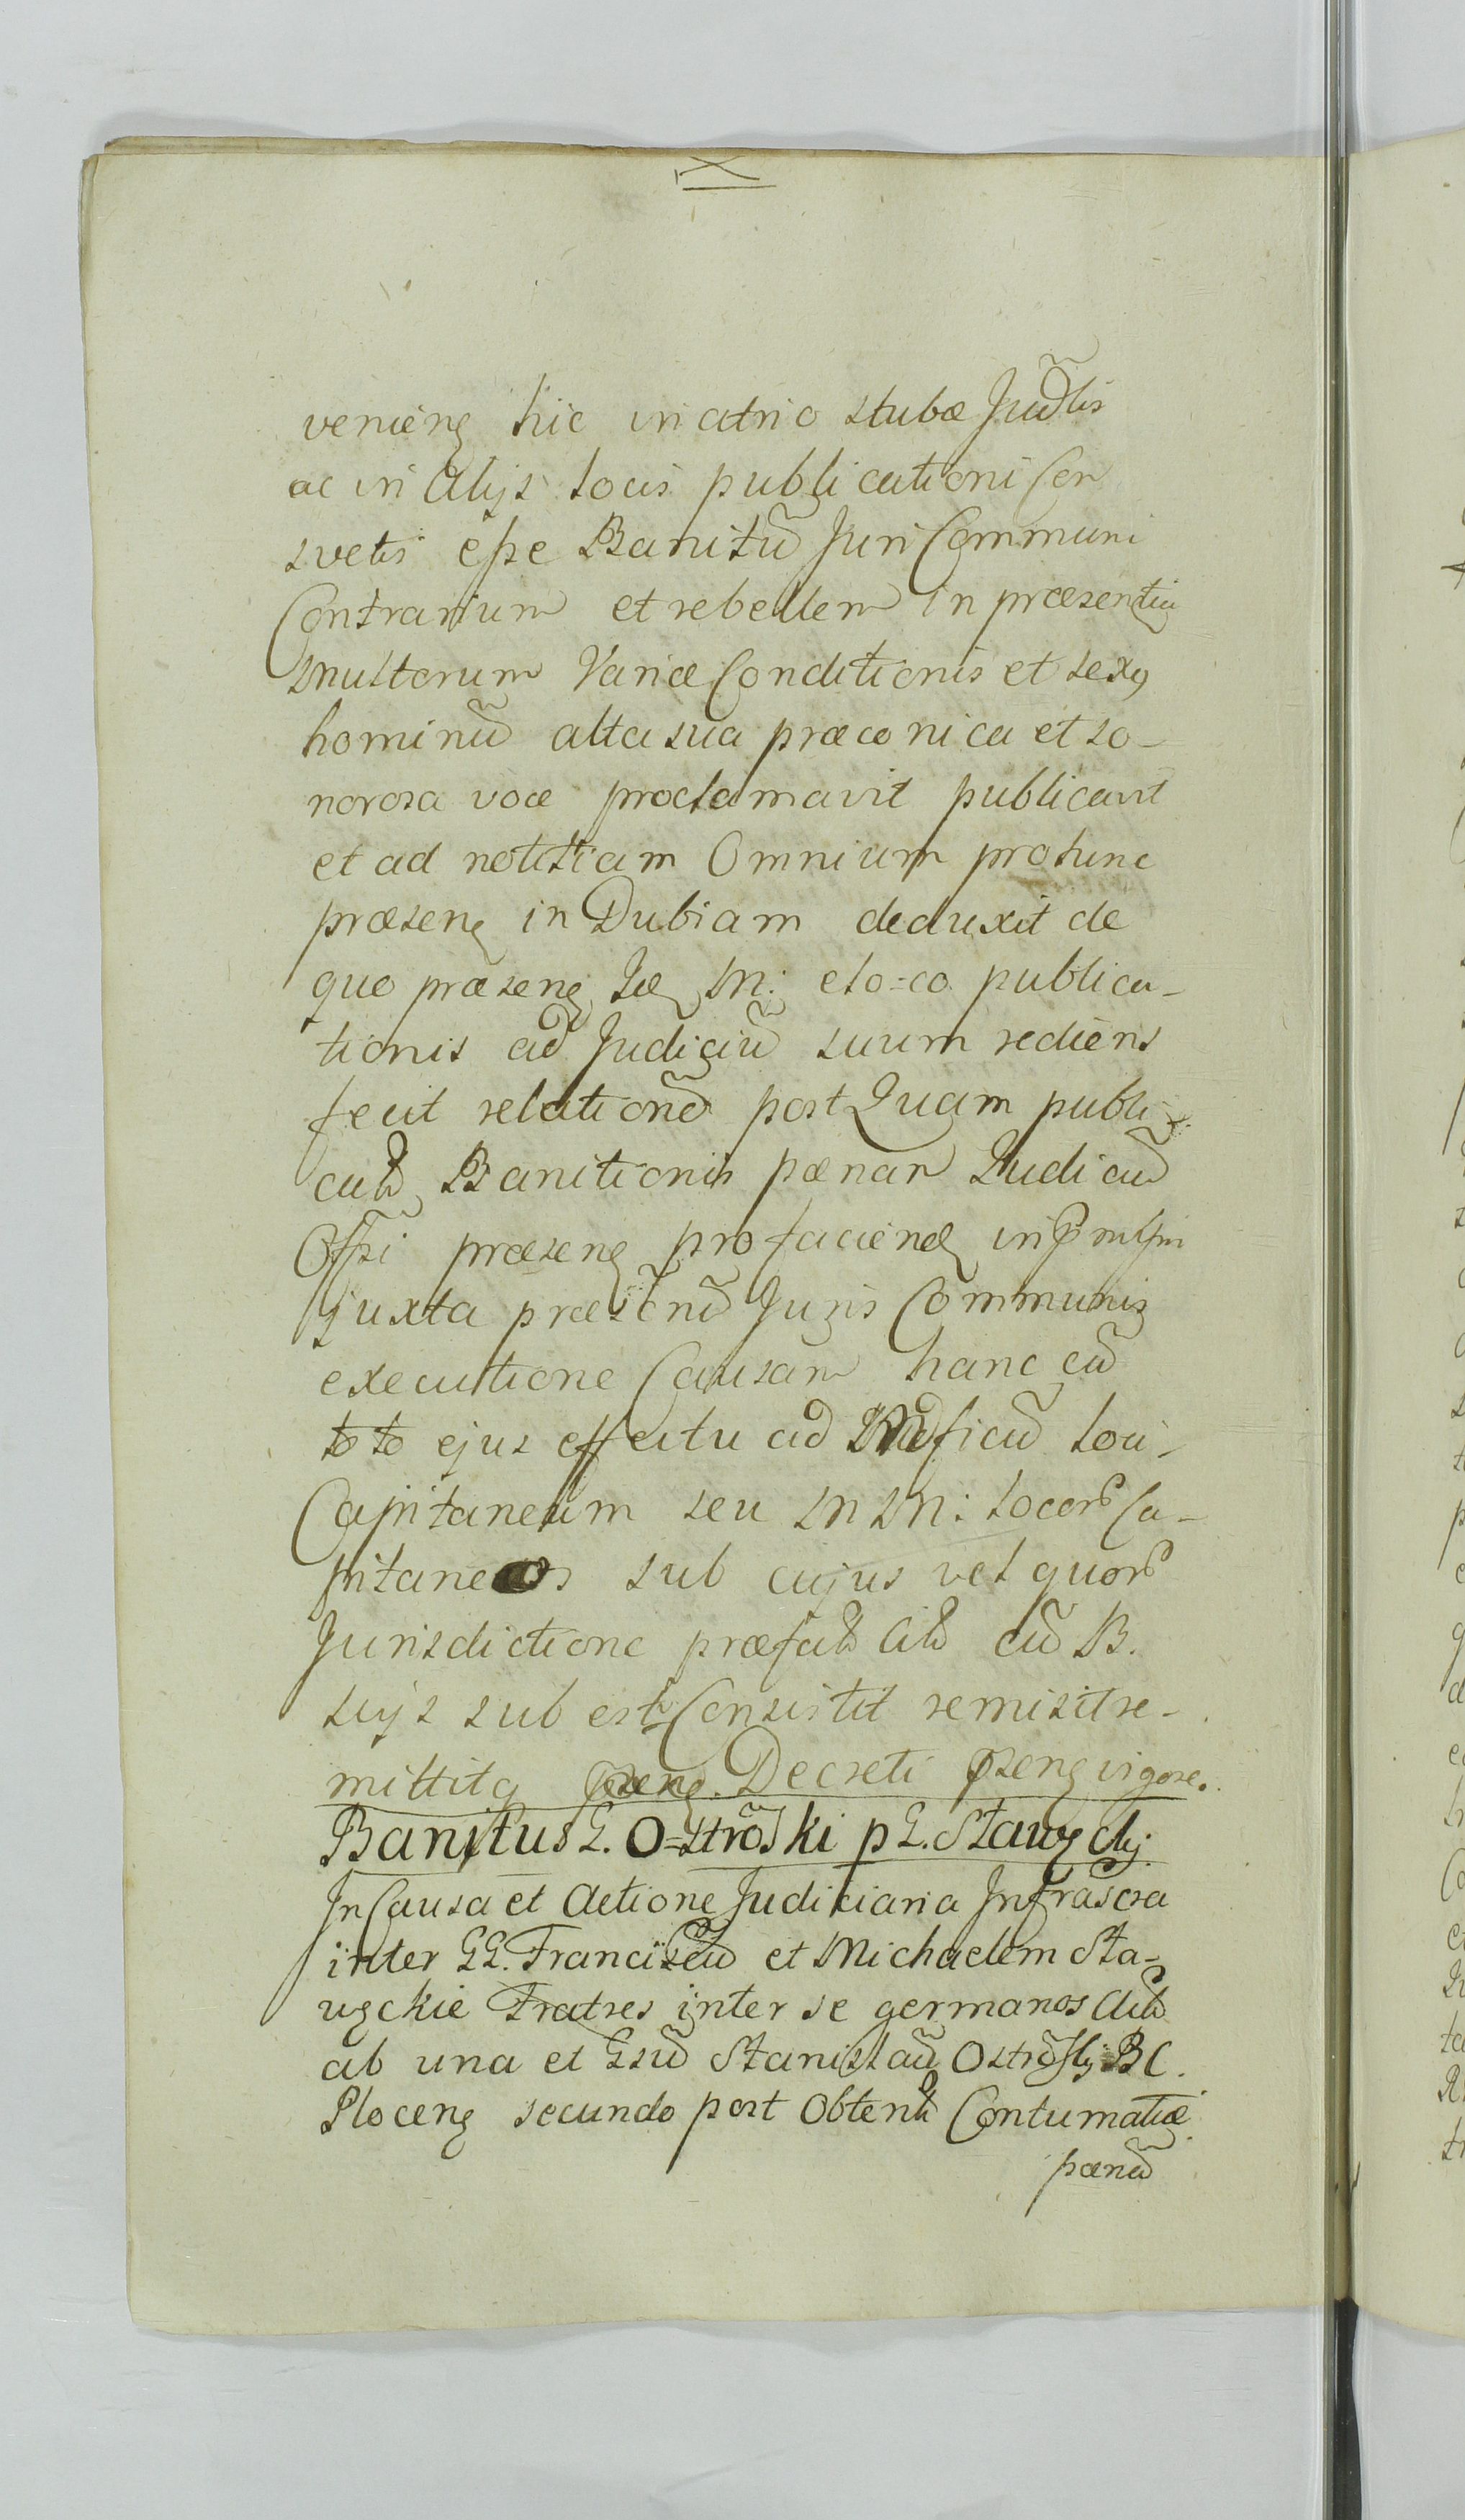 X
veniens hic in atrio stubæ Judlis
ac in Alijs locis publicationi Con
svetis esse Banitũ Juri Communi
Contrarium et rebellem in præsentia
Multorum Variæ Conditionis et sexq
hominũ alta sua præconica et so-
norosa voce proclamavit publicavit
et ad notitiam Omnium protunc
præsenq in Dubiam deduxit de
quo præsenq M: eloco publica-
tionis ad Judiciũ suum rediens
fecit relationẽ post Quam publi
catã Banitionis pænam Judiciũ
Offi præsenq profaciend
juxta præsenũ Juris Communis
executione Causam hanc cũ
toto ejus effectu ad Mdficũ loci
Capitaneum seu MM: locorũ Ca-
pitaneos sub cujus vel quorũ
Jurisdictione præfatũ Citũ cũ B.
suys sub est Consistit remisit re-
mittitq Decreti psenq vigore.
Banitus G. O=strõski p G. Stawz
In Causa et Actione Judiciaria Infrascra
inter GG. Franciscũ et Michaelem Sta-
wzckie Fratres inter se germanos Actã
ab una et Gsũ Stanislaũ Ostrõski BC.
Plocenq secundo post Obtentã Contumatiæ
pænã